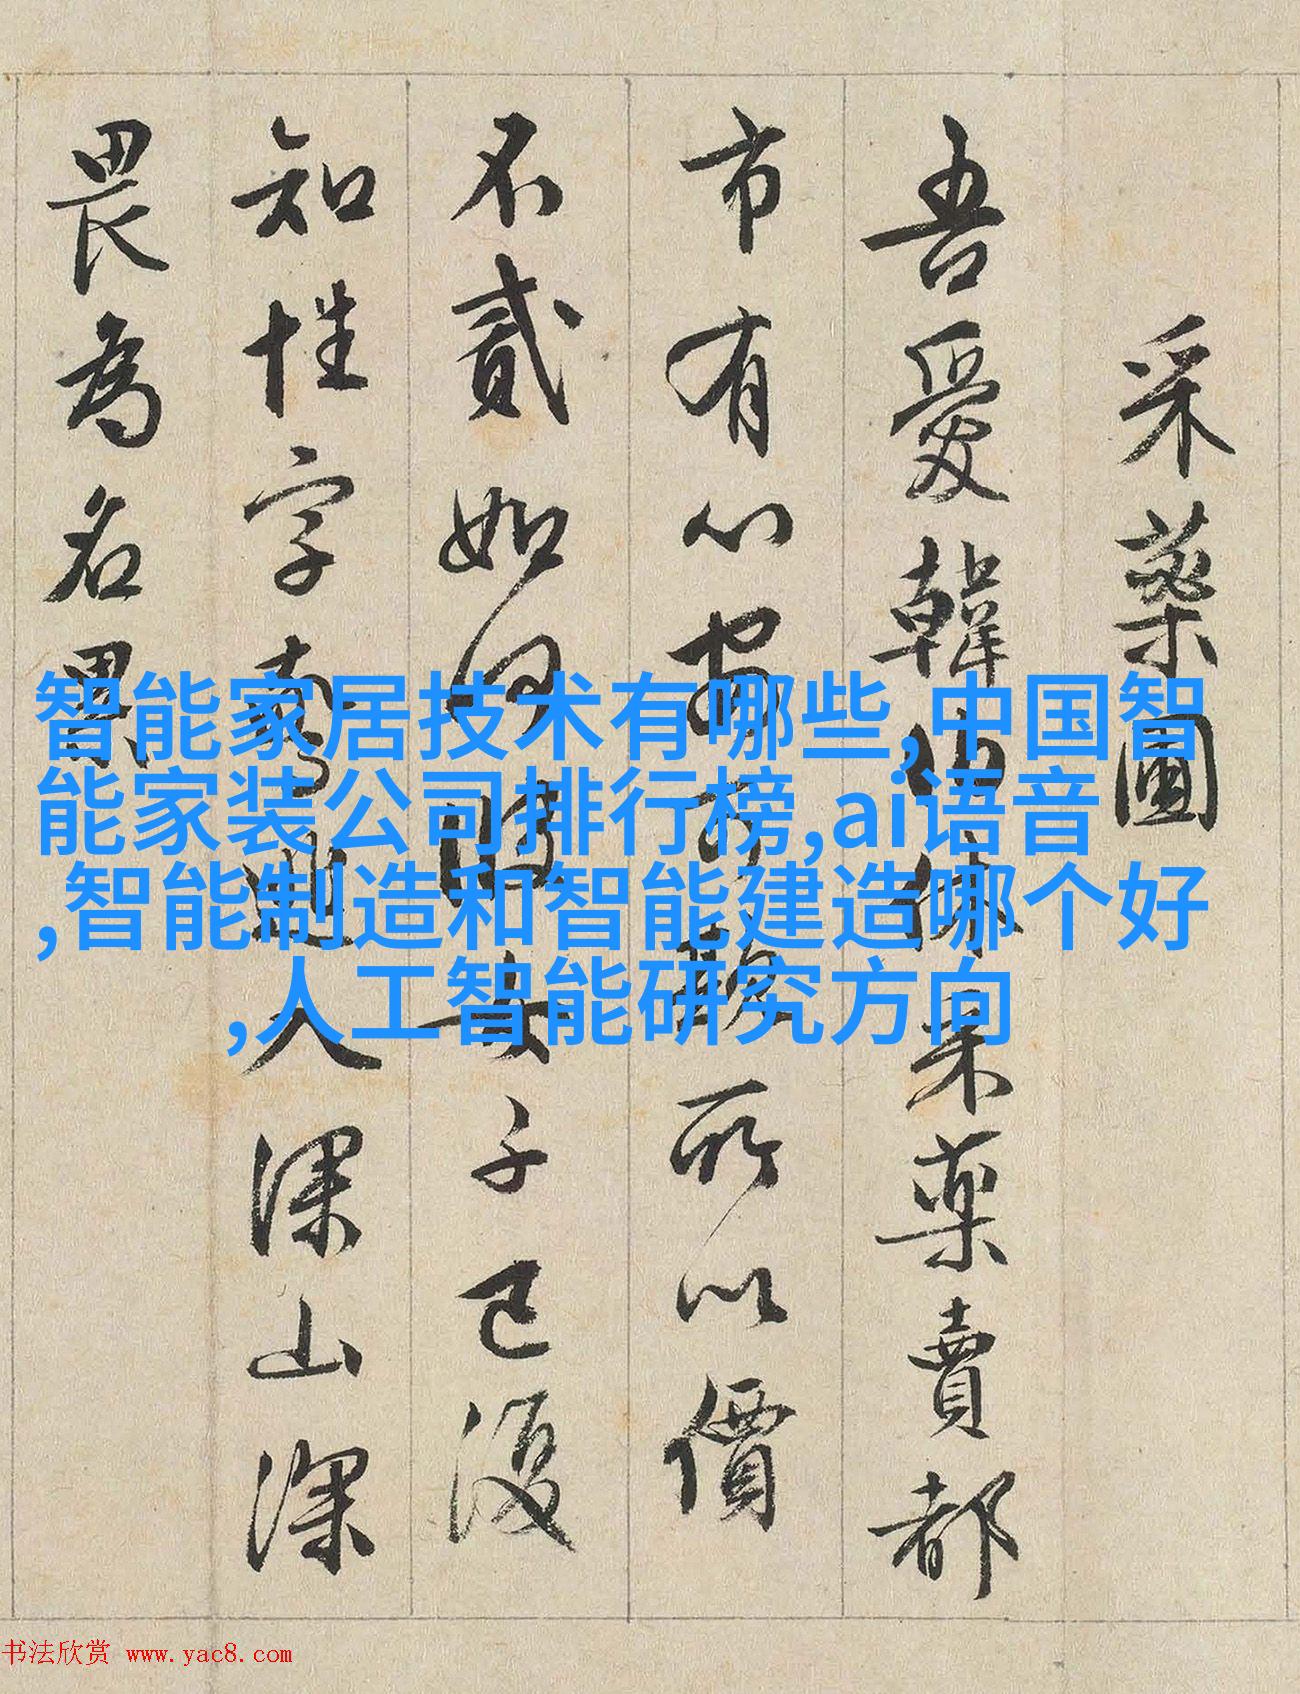 采藥圖
吾愛韓伯休采藥賣都
市有心安可期所以價
不貳如何時女子已復
知性字高遁入深山深
畏為名累
智能家居技术有哪些,中国智
能家装公司排行榜,ai语音
,智能制造和智能建造哪个好
,人工智能研究方向
书法欣赏 www.yac8.com